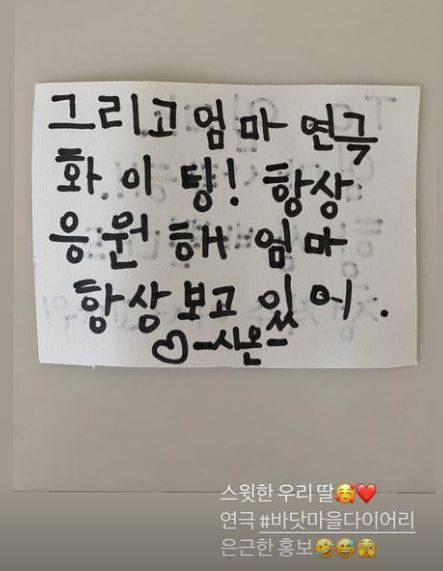 그리고 엄마 연극
화이팅! 항상
응원해 엄마
항상 보고 있어.
♡-시온-
스윗한 우리 딸🥰❤️
연극 #바닷마을다이어리
은근한 홍보🤣😅🫣